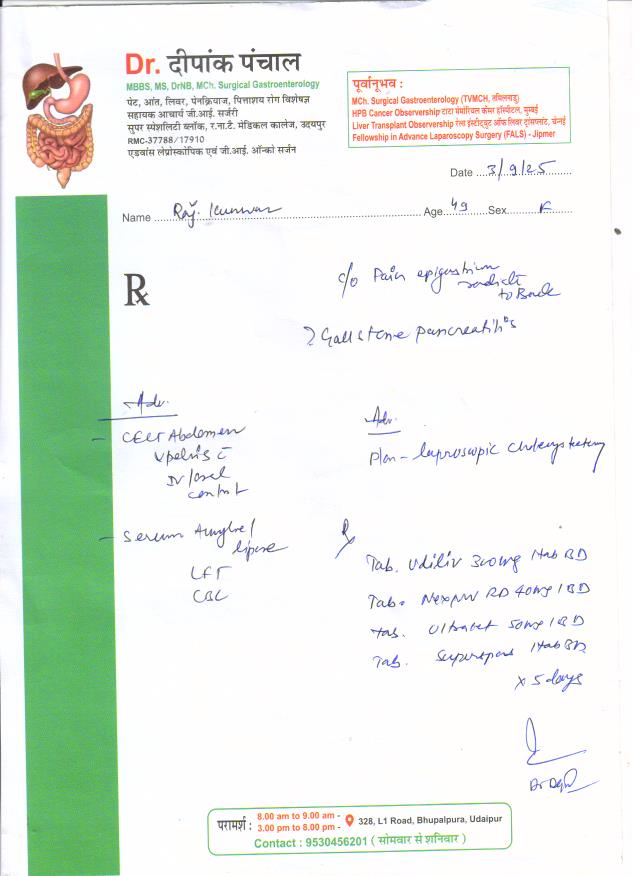 Dr. दीपांक पंचाल
MBBS, MS, DrNB, MCh. Surgical Gastroenterology
पेट, आंत, लिवर, पेनक्रियाज, पित्ताशय रोग विशेषज्ञ
सहायक आचार्य जी.आई. सर्जरी
सुपर स्पेशलिटी ब्लॉक, र.ना.टै. मेडिकल कालेज, उदयपुर
RMC-37788/17910
एडवांस लेप्रोस्कोपिक एवं जी.आई. ऑन्को सर्जन
पूर्वानुभव :
MCh. Surgical Gastroenterology (TVMCH, तमिलनाडु)
HPB Cancer Observership टाटा मेमोरियल कैंसर हॉस्पीटल, मुम्बई
Liver Transplant Observership रेला इंस्टीट्यूट ऑफ लिवर ट्रांसप्लांट, चेन्नई
Fellowship in Advance Laparoscopy Surgery (FALS) - Jipmer
Date 3/9/25
Name Raj. Kunwar Age 49 Sex F
Rx
c/o Pain epigastrium
radiate
to Back
? Gall stone pancreatitis
Adv.
- CECT Abdomen
& pelvis c̄
IV/oral
- Serum Amylase/
lipase
LFT
CBC
Adv.
Plan - laproscopic
Rx
Tab. Udiliv 300mg 1tab BD
Tab. RD 40mg 1 BD
Tab. Ultracet 50mg 1 BD
Tab. 1tab BD
x 5 days
परामर्श :
8.00 am to 9.00 am -
3.00 pm to 8.00 pm -
328, L1 Road, Bhupalpura, Udaipur
Contact : 9530456201 ( सोमवार से शनिवार )